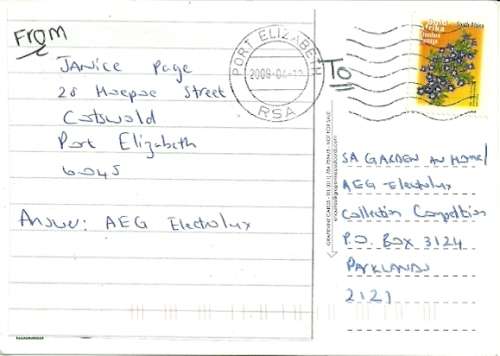 From
Janice Page
28 Hoepoe Street
Cotswald
Port Elizabeth
6045
Answer: AEG Electrolux
PORT ELIZABETH
2009-04-
RSA
To
South Africa
SA GARDEN AN HOME/
AEG Electrolux
Collection Competition
P.O. BOX 3124
PARKLANDS
2121